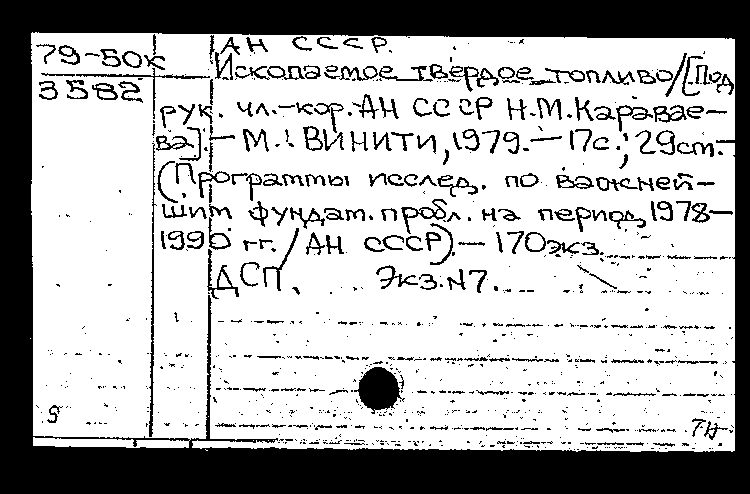 79-50к
3582
АН СССР.
Ископаемое твердое топливо/[Под
рук. чл.-кор. АН СССР Н.М.Каравае-
ва].- М.: ВИНИТИ, 1979.- 17с.; 29см.-
(Программы исслед. по важней-
шим фундам. пробл. на период 1978-
1990 гг./АН СССР).- 170экз.
ДСП. Экз.N7.
9